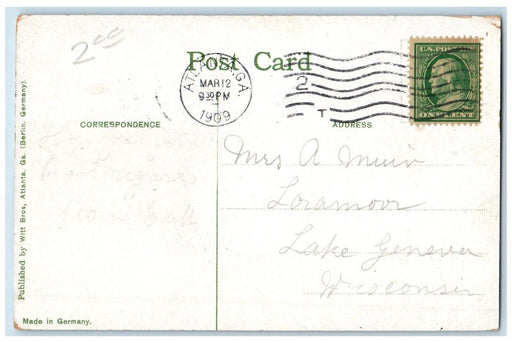 2.00
Post Card
ATLANTA, GA.
MAR 12
9 30 PM
1909
2
T
U.S. POSTAGE
ONE CENT
CORRESPONDENCE
ADDRESS
regards
from
Mrs A Muir
Loramoor
Lake Geneva
Wisconsin
Published by Witt Bros, Atlanta, Ga. (Berlin, Germany).
Made in Germany.